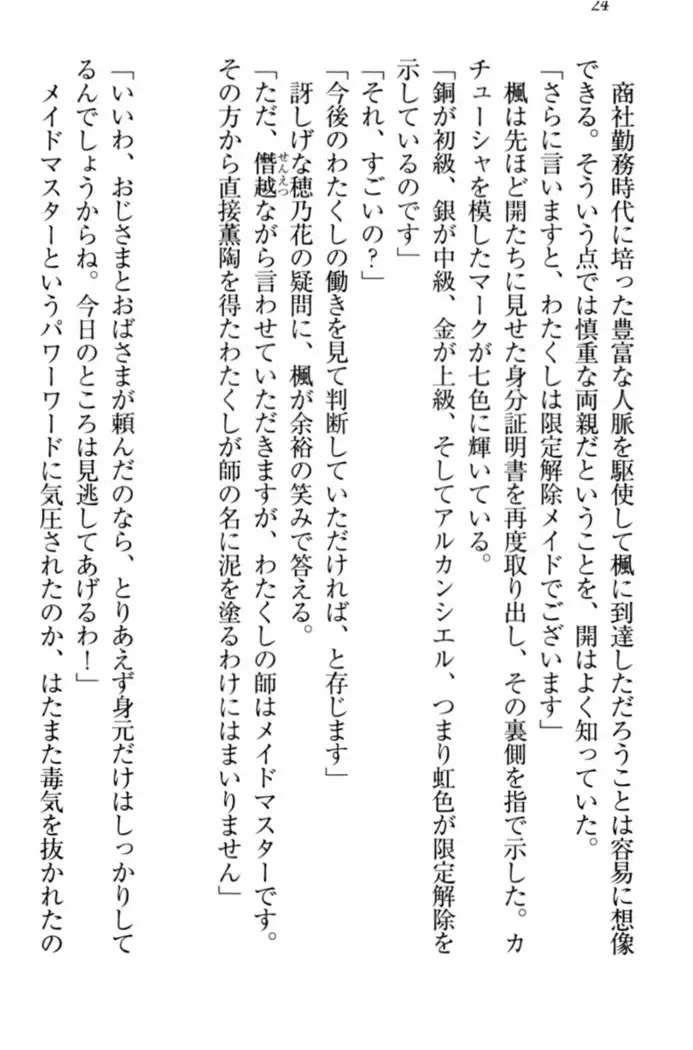 24
商社勤務時代に培った豊富な人脈を駆使して楓に到達しただろうことは容易に想像
できる。そういう点では慎重な両親だということを、開はよく知っていた。
「さらに言いますと、わたくしは限定解除メイドでございます」
楓は先ほど開たちに見せた身分証明書を再度取り出し、その裏側を指で示した。カ
チューシャを模したマークが七色に輝いている。
「銅が初級、銀が中級、金が上級、そしてアルカンシエル、つまり虹色が限定解除を
示しているのです」
「それ、すごいの？」
「今後のわたくしの働きを見て判断していただければ、と存じます」
訝しげな穂乃花の疑問に、楓が余裕の笑みで答える。
「ただ、僭越ながら言わせていただきますが、わたくしの師はメイドマスターです。
せんえつ
その方から直接薫陶を得たわたくしが師の名に泥を塗るわけにはまいりません」
「いいわ、おじさまとおばさまが頼んだのなら、とりあえず身元だけはしっかりして
るんでしょうからね。今日のところは見逃してあげるわ！」
メイドマスターというパワーワードに気圧されたのか、はたまた毒気を抜かれたの